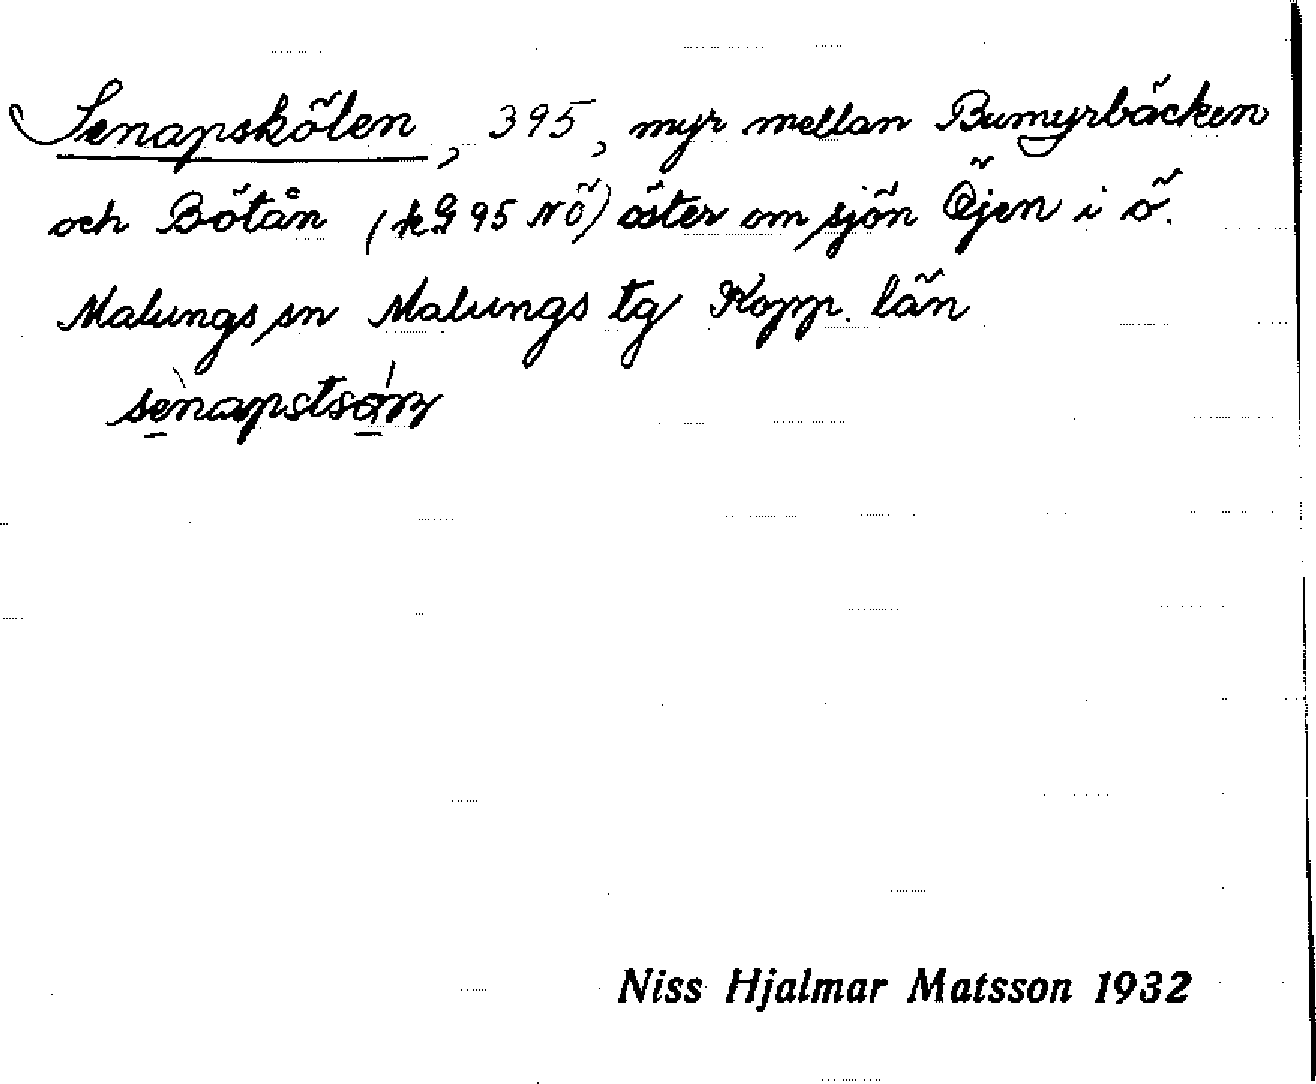 Senapskölen, 395, myr mellan Bumyrbäcken
och Bötån (kg 95 NÖ) öster om sjön Öjen i ö.
Malungs sn Malungs tg Kopp. län
Niss Hjalmar Matsson 1932